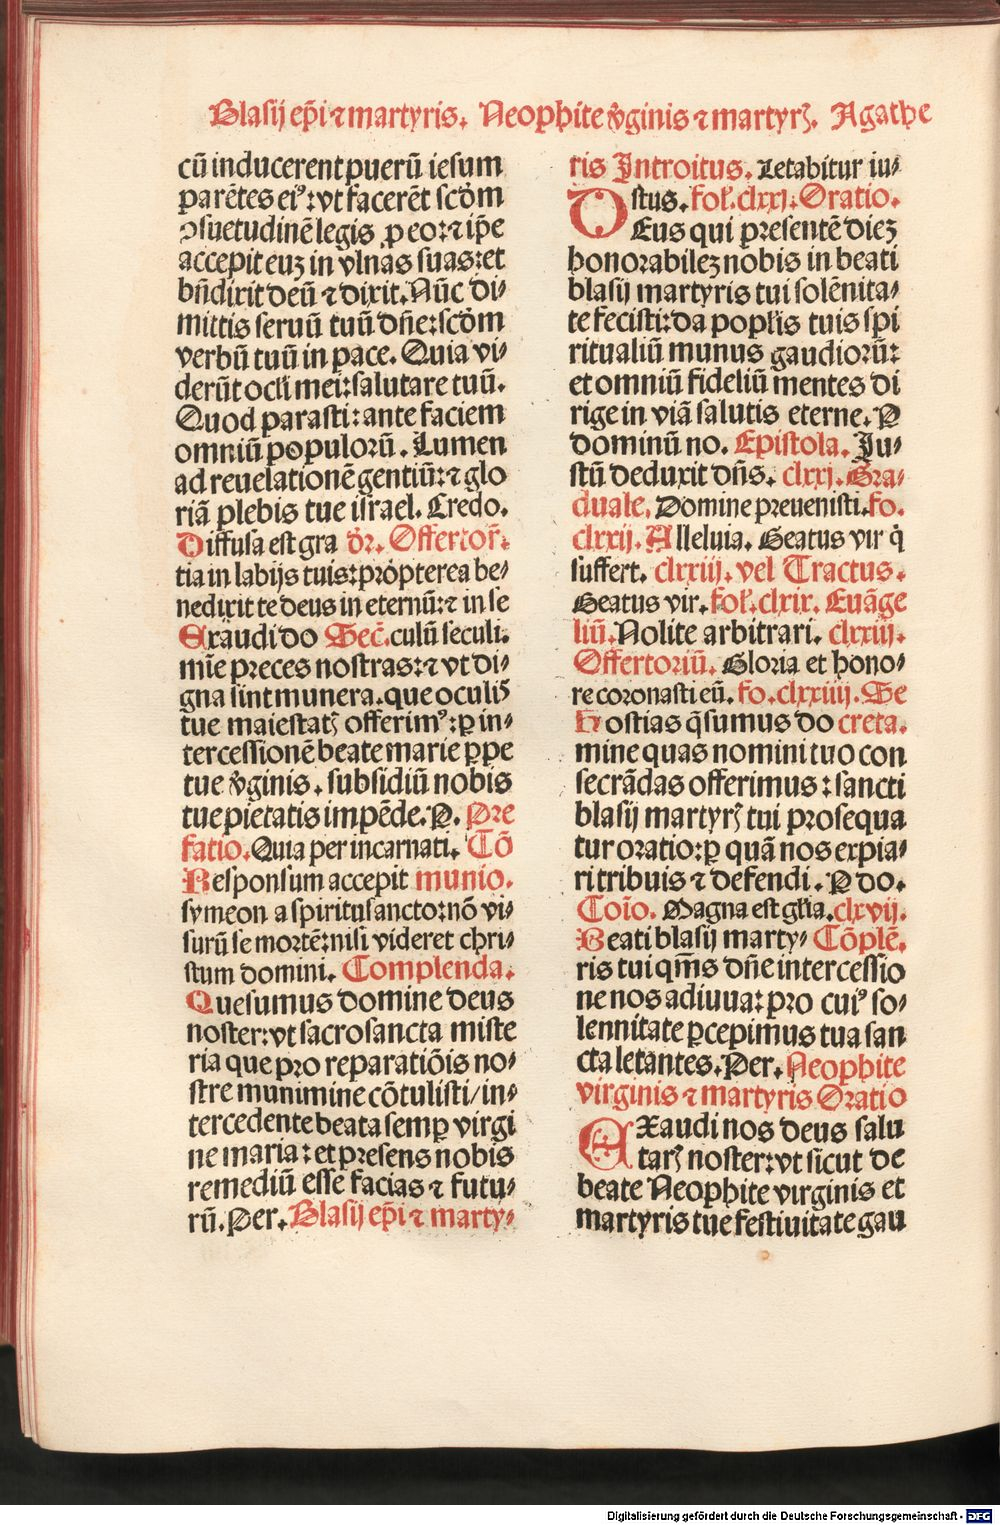 Blasij ep̄i ⁊ martyris. Neophite v̾ginis ⁊ martyrꝫ. Agathe
cū inducerent puerū iesum
parētes eiꝰ: vt facerēt scd̓m
ꝯsuetudinē legis ꝓ eo: ⁊ ip̄e
accepit euꝫ in vlnas suas: et
bn̄dixit deū ⁊ dixit. Nūc di⸗
mittis seruū tuū dn̄e: scd̓m
verbū tuū in pace. Quia vi⸗
derūt ocl̓i mei: salutare tuū.
Quod parasti: ante faciem
omniū populorū. Lumen
ad reuelationē gentiū: ⁊ glo
riā plebis tue israel. Credo.
Diffusa est gra ðr. Offertor̄.
tia in labijs tuis: propterea be⸗
nedixit te deus in eternū: ⁊ in se
Exaudi do Sec̄. culū seculi.
mīe preces nostras: ⁊ vt di⸗
gna sint munera. que oculiꝰ
tue maiestatꝫ offerimꝰ: ꝑ in⸗
tercessionē beate marie ꝑpe
tue v̾ginis. subsidiū nobis
tue pietatis impēde. P. Pre
fatio. Quia per incarnati. Cō
Responsum accepit munio.
symeon a spiritusancto: nō vi⸗
surū se mortē: nisi videret chri⸗
stum domini. Complenda.
Quesumus domine deus
noster: vt sacrosancta miste
ria que pro reparatiōis no⸗
stre munimine cōtulisti/ in⸗
tercedente beata semꝑ virgi
ne maria: et presens nobis
remediū esse facias ⁊ futu⸗
rū. Per. Blasij ep̄i ⁊ marty⸗
ris Introitus. Letabitur iu⸗
stus. fol̓. clxxj. Oratio.
DEus qui presentē dieꝫ
honorabileꝫ nobis in beati
blasij martyris tui solēnita⸗
te fecisti: da popl̓is tuis spi
ritualiū munus gaudiorū:
et omniū fideliū mentes di
rige in viā salutis eterne. P
dominū no. Epistola. Ju⸗
stū deduxit dn̄s. clxxj. Gra⸗
duale. Domine preuenisti. fo.
clxxij. Alleluia. Beatus vir q̓
suffert. clxxiij. vel Tractus.
Beatus vir. fol̓. clxix. Euāge
liū. Nolite arbitrari. clxxiij.
Offertoriū. Gloria et hono⸗
re coronasti eū. fo. clxxiiij. Se
Hostias q̄sumus do creta.
mine quas nomini tuo con
secrādas offerimus: sancti
blasij martyrꝫ tui prosequa
tur oratio: ꝑ quā nos expia⸗
ri tribuis ⁊ defendi. P do.
Coīo. Magna est gl̓ia. clxvij.
Beati blasij marty⸗ Cōplē.
ris tui qm̄s dn̄e intercessio
ne nos adiuua: pro cuiꝰ so⸗
lennitate ꝑcepimus tua san
cta letantes. Per. Neophite
virginis ⁊ martyris Oratio
EXaudi nos deus salu
tarꝫ noster: vt sicut de
beate Neophite virginis et
martyris tue festiuitate gau
Digitalisierung gefördert durch die Deutsche Forschungsgemeinschaft - DFG